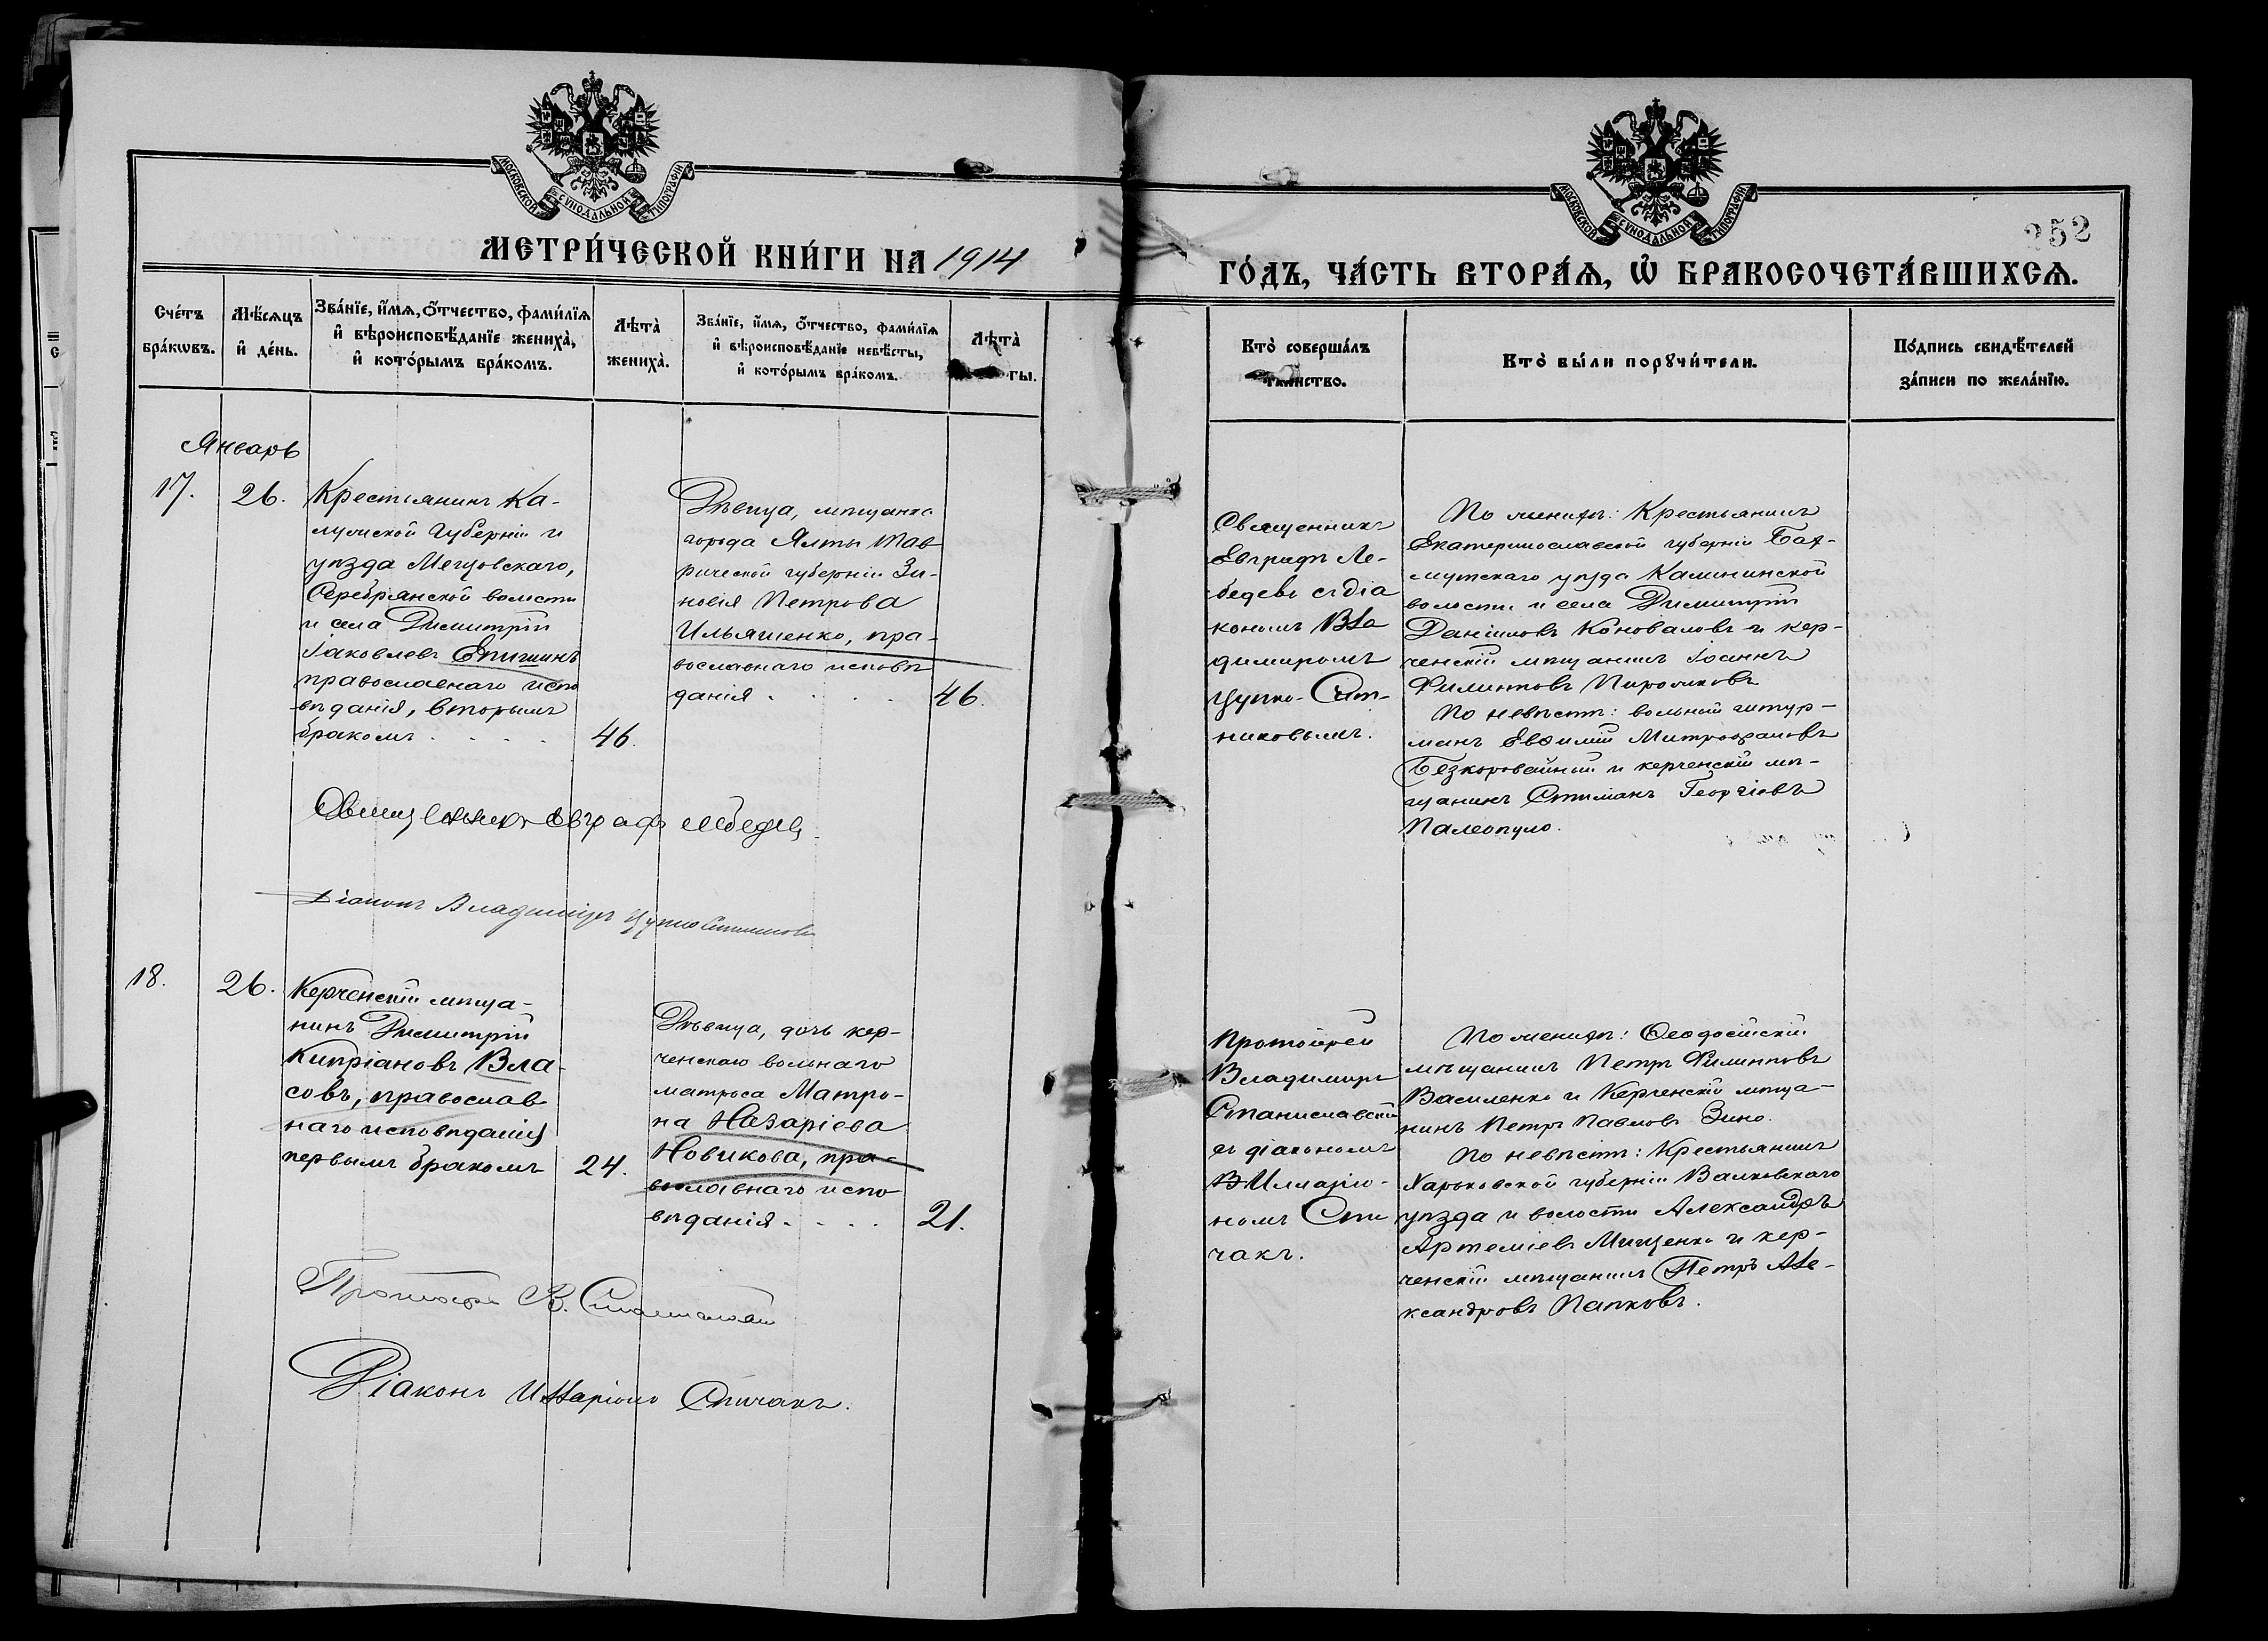 МОСКОВСКОЙ СѴНОДАЛЬНОЙ ТИПОГРАФІИ
МОСКОВСКОЙ СѴНОДАЛЬНОЙ ТИПОГРАФІИ
252
МЕТРИ́ЧЕСКОЙ КНИ́ГИ НА 1914
ГО́ДЪ, ЧА́СТЬ ВТОРА́Ѧ, Ѡ҆ БРАКОСОЧЕТА́ВШИХСѦ.
Сче́тъ
бра́кѡвъ.
Мѣ́сѧцъ
и҆ де́нь.
Зва́нїе, и҆́мѧ, ѻ҆́тчество, фами́лїѧ
и҆ вѣроисповѣ́данїе жениха̀,
и҆ кото́рымъ бра́комъ.
Лѣта̀
жениха̀.
Зва́нїе, и҆́мѧ, ѻ҆́тчество, фами́лїѧ
и҆ вѣроисповѣ́данїе невѣ́сты,
и҆ кото́рымъ бра́комъ.
Лѣта̀
ты.
Кто̀ соверша́лъ
таинство.
Кто̀ бы́ли порꙋчи́тели.
По́дпись свидѣ́телей
за́писи по жела́нїю.
Январь
17.
26.
Крестьянинъ Ка-
лужской губерніи и
уѣзда Мещовскаго,
Серебрянской волости
и села Димитрій
Іаковлевъ Епишинъ
православнаго испо
вѣданія, вторымъ
бракомъ . . . .
46.
Дѣвица, мѣщанка
города Ялты Тав-
рической губерніи Зи-
новія Петрова
Ильяшенко, пра-
вославнаго исповѣ
данія . . . .
46.
Священникъ
Евграфъ Ле-
бедевъ съ діа
кономъ Вла
димиромъ
Цупко-Сит-
никовымъ.
По женихѣ: Крестьянинъ
Екатеринославской губерніи Бах-
мутскаго уѣзда Калининской
волости и села Димитрій
Даніиловъ Коноваловъ и кер-
ченскій мѣщанинъ Іоаннъ
Филипповъ Пирожковъ
По невѣстѣ: вольный штур-
манъ Евѳимій Митрофановъ
Безкоровайный и керченскій мѣ-
щанинъ Стиліанъ Георгіевъ
Палеопуло.
Священникъ Евграфъ Лебедев
Діаконъ Владиміръ Цупко Ситников
18.
26.
Керченскій мѣща-
нинъ Димитрій
Кипріановъ Вла-
совъ, православ-
наго исповѣданія
первымъ бракомъ
24.
Дѣвица, дочь кер-
ченскаго вольнаго
матроса Матро-
на Назаріева
Новикова, пра-
вославнаго испо
вѣданія . . . .
21.
Протоіерей
Владимиръ
Станиславскій
съ діакономъ
Илларіо-
номъ Спи
чакъ.
По женихѣ: Ѳеодосійскій
мѣщанинъ Петръ Филипповъ
Василенко и Керченскій мѣща-
нинъ Петръ Павловъ Зино.
По невѣстѣ: Крестьянинъ
Харьковской губерніи Валковскаго
уѣзда и волости Александръ
Артеміевъ Мищенко и кер-
ченскій мѣщанинъ Петръ Але-
ксандровъ Папковъ.
Протоіерей В. Станиславскій
Діаконъ Илларіонъ Спичакъ.